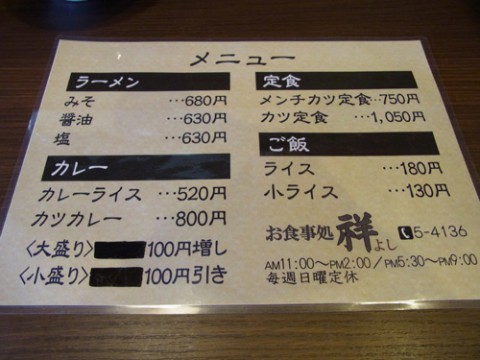 メニュー
ラーメン
みそ …680円
醤油 …630円
塩 …630円
カレー
カレーライス …520円
カツカレー …800円
〈大盛り〉100円増し
〈小盛り〉100円引き
定食
メンチカツ定食…750円
カツ定食 …1,050円
ご飯
ライス …180円
小ライス …130円
お食事処 祥 よし 5-4136
AM11:00〜PM2:00/PM5:30〜PM9:00
毎週日曜定休